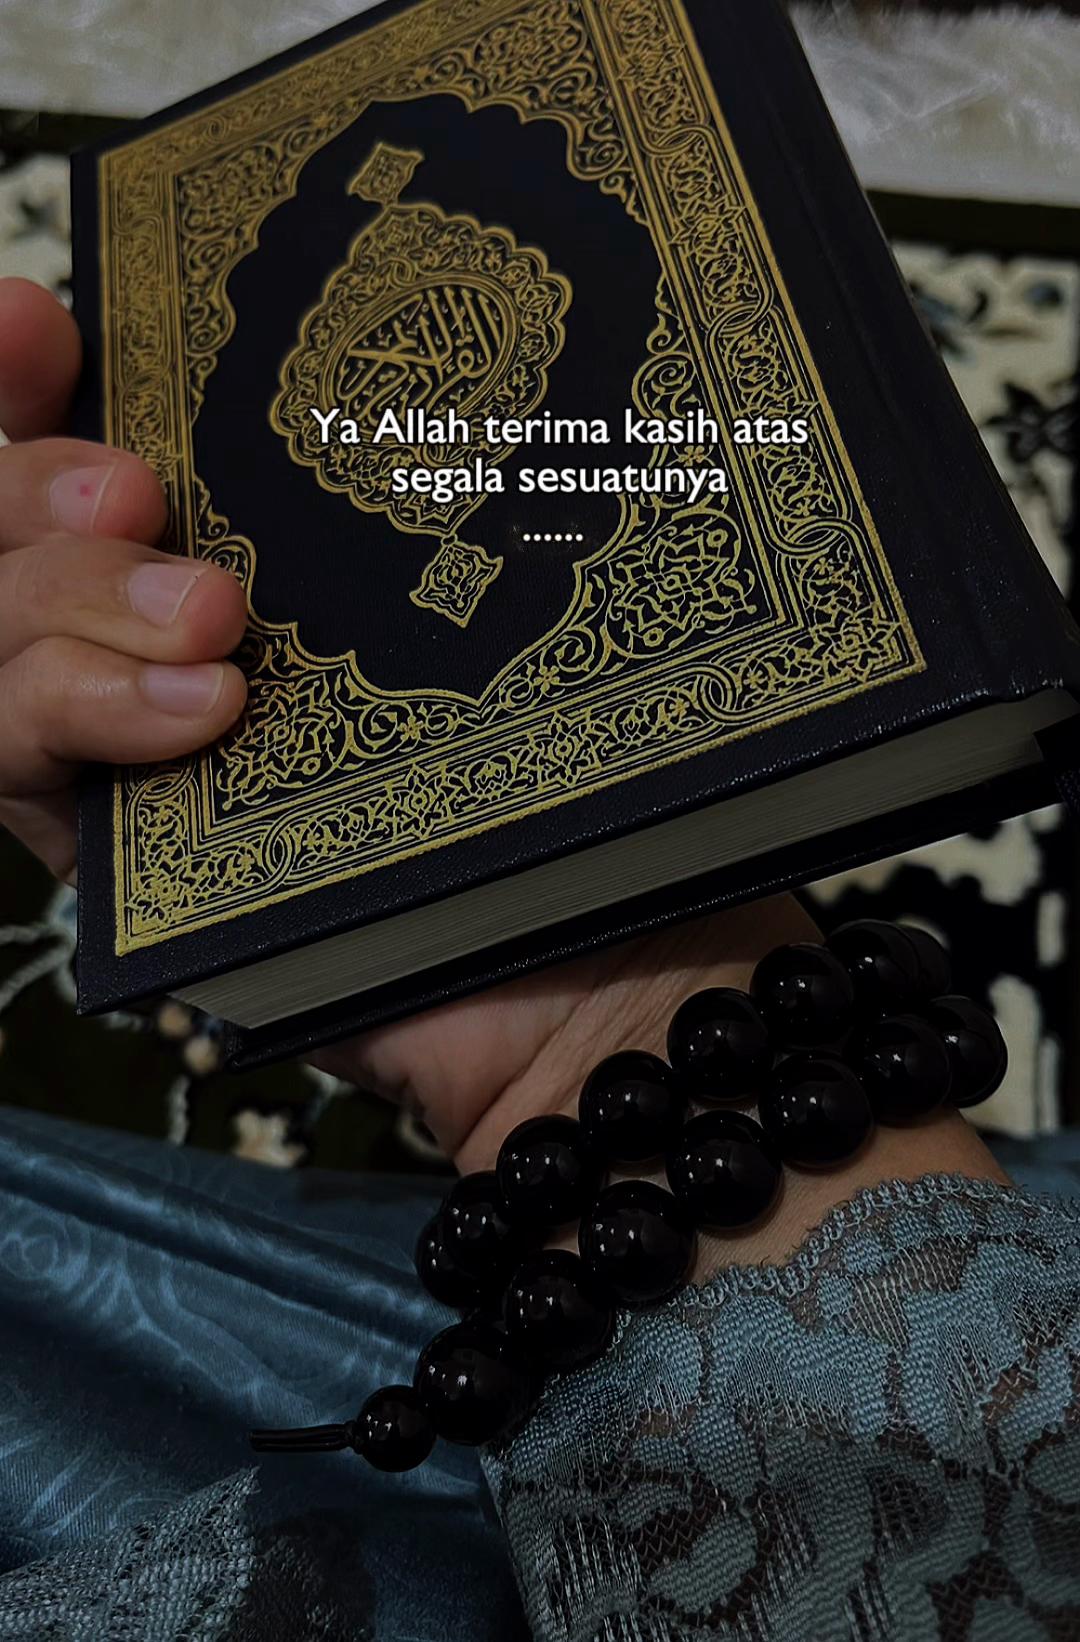 القرآن الكريم
Ya Allah terima kasih atas
segala sesuatunya
......